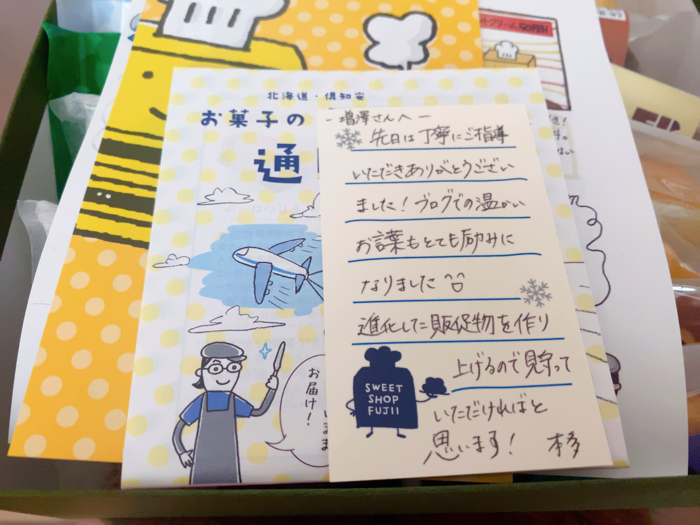 北海道・倶知安
お菓子の
通
お届け!
- 増澤さんへ -
先日は丁寧にご指導
いただきありがとうござい
ました!ブログでの温かい
お言葉もとても励みに
なりました
進化した販促物を作り
上げるので見守って
いただければと
思います! 本多
SWEET
SHOP
FUJII